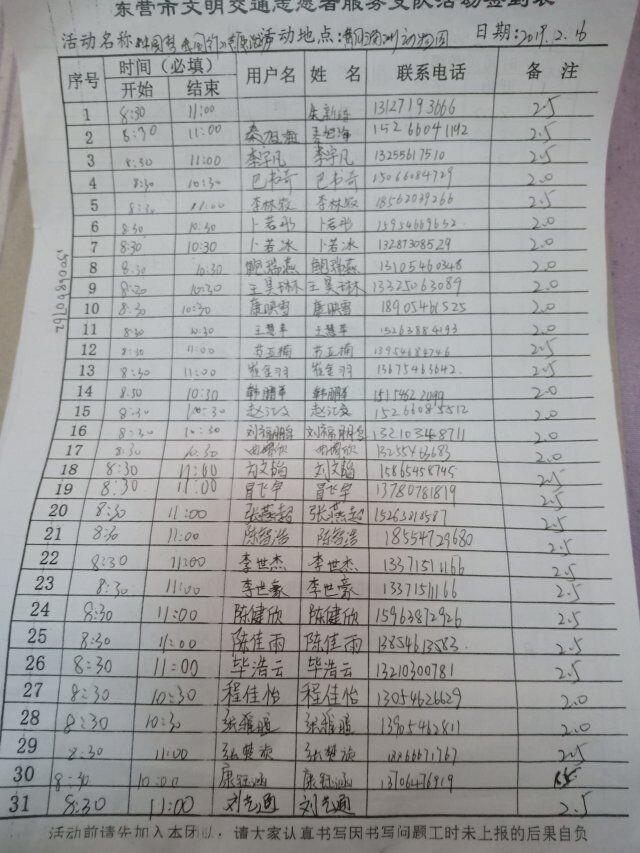 东营市文明交通志愿者服务支队活动签到表
活动名称: 活动地点: 动物园 日期: 2019.2.16
序号 时间（必填） 用户名 姓名 联系电话 备注
开始 结束
1 8:30 11:00 13127193666 2.5
2 8:30 11:00 秦旭海 秦旭海 15266041192 2.5
3 8:30 11:00 李宇凡 李宇凡 13255617510 2.5
4 8:30 10:30 巴书奇 巴书奇 15066084729 2.0
5 8:30 11:00 李林骏 李林骏 18562039266 2.5
6 8:30 10:30 卜若彤 卜若彤 15954669652 2.0
7 8:30 10:30 卜若冰 卜若冰 13287308529 2.0
8 8:30 10:30 鲍瑞燕 鲍瑞燕 13105460348 2.0
9 8:30 10:30 王昊琳 王昊琳 13325063089 2.0
10 8:30 10:30 康映雪 康映雪 18905461525 2.0
11 8:30 10:30 王慧苹 王慧苹 15263884193 2.0
12 8:30 11:00 苏亚楠 苏亚楠 13954684746 2.5
13 8:30 11:00 崔金羽 崔金羽 13675463642 2.5
14 8:30 10:30 韩鹏军 韩鹏军 2.0
15 8:30 10:30 赵江文 赵江文 15266085512 2.0
16 8:30 10:30 刘福鹏 刘福鹏 13210348711 2.0
17 8:30 10:30 13255463683 2.0
18 8:30 11:00 刘文韬 刘文韬 15865458745 2.5
19 8:30 11:00 冒飞宇 冒飞宇 13780781819 2.5
20 8:30 11:00 张燕超 张燕超 15263818587 2.5
21 8:30 11:00 陈智浩 陈智浩 18554729680 2.5
22 8:30 11:00 李世杰 李世杰 13371511166 2.5
23 8:30 11:00 李世豪 李世豪 13371511166 2.5
24 8:30 11:00 陈健欣 陈健欣 15963872926 2.5
25 8:30 11:00 陈佳雨 陈佳雨 13854613583 2.5
26 8:30 11:00 毕浩云 毕浩云 13210300781 2.5
27 8:30 10:30 程佳怡 程佳怡 13054626629 2.0
28 8:30 10:30 13905462811 2.0
29 8:30 11:00 张楚旋 张楚旋 2.5
30 8:30 10:00 康钰涵 康钰涵 13706476819 1.5
31 8:30 11:00 刘志通 刘志通 2.5
活动前请先加入本团队，请大家认真书写因书写问题工时未上报的后果自负